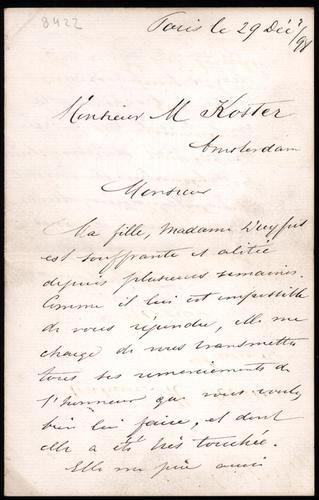 8422
Paris le 29 Déc 98
Monsieur M Koster
Amsterdam
Monsieur
Ma fille, Madame Dreyfus
est souffrante et alitée
depuis plusieurs semaines.
Comme il lui est impossible
de vous répondre, elle me
charge de vous transmettre
tous ses remerciements de
l'honneur que vous voulez
bien lui faire, et dont
elle a été très touchée.
Elle me prie aussi